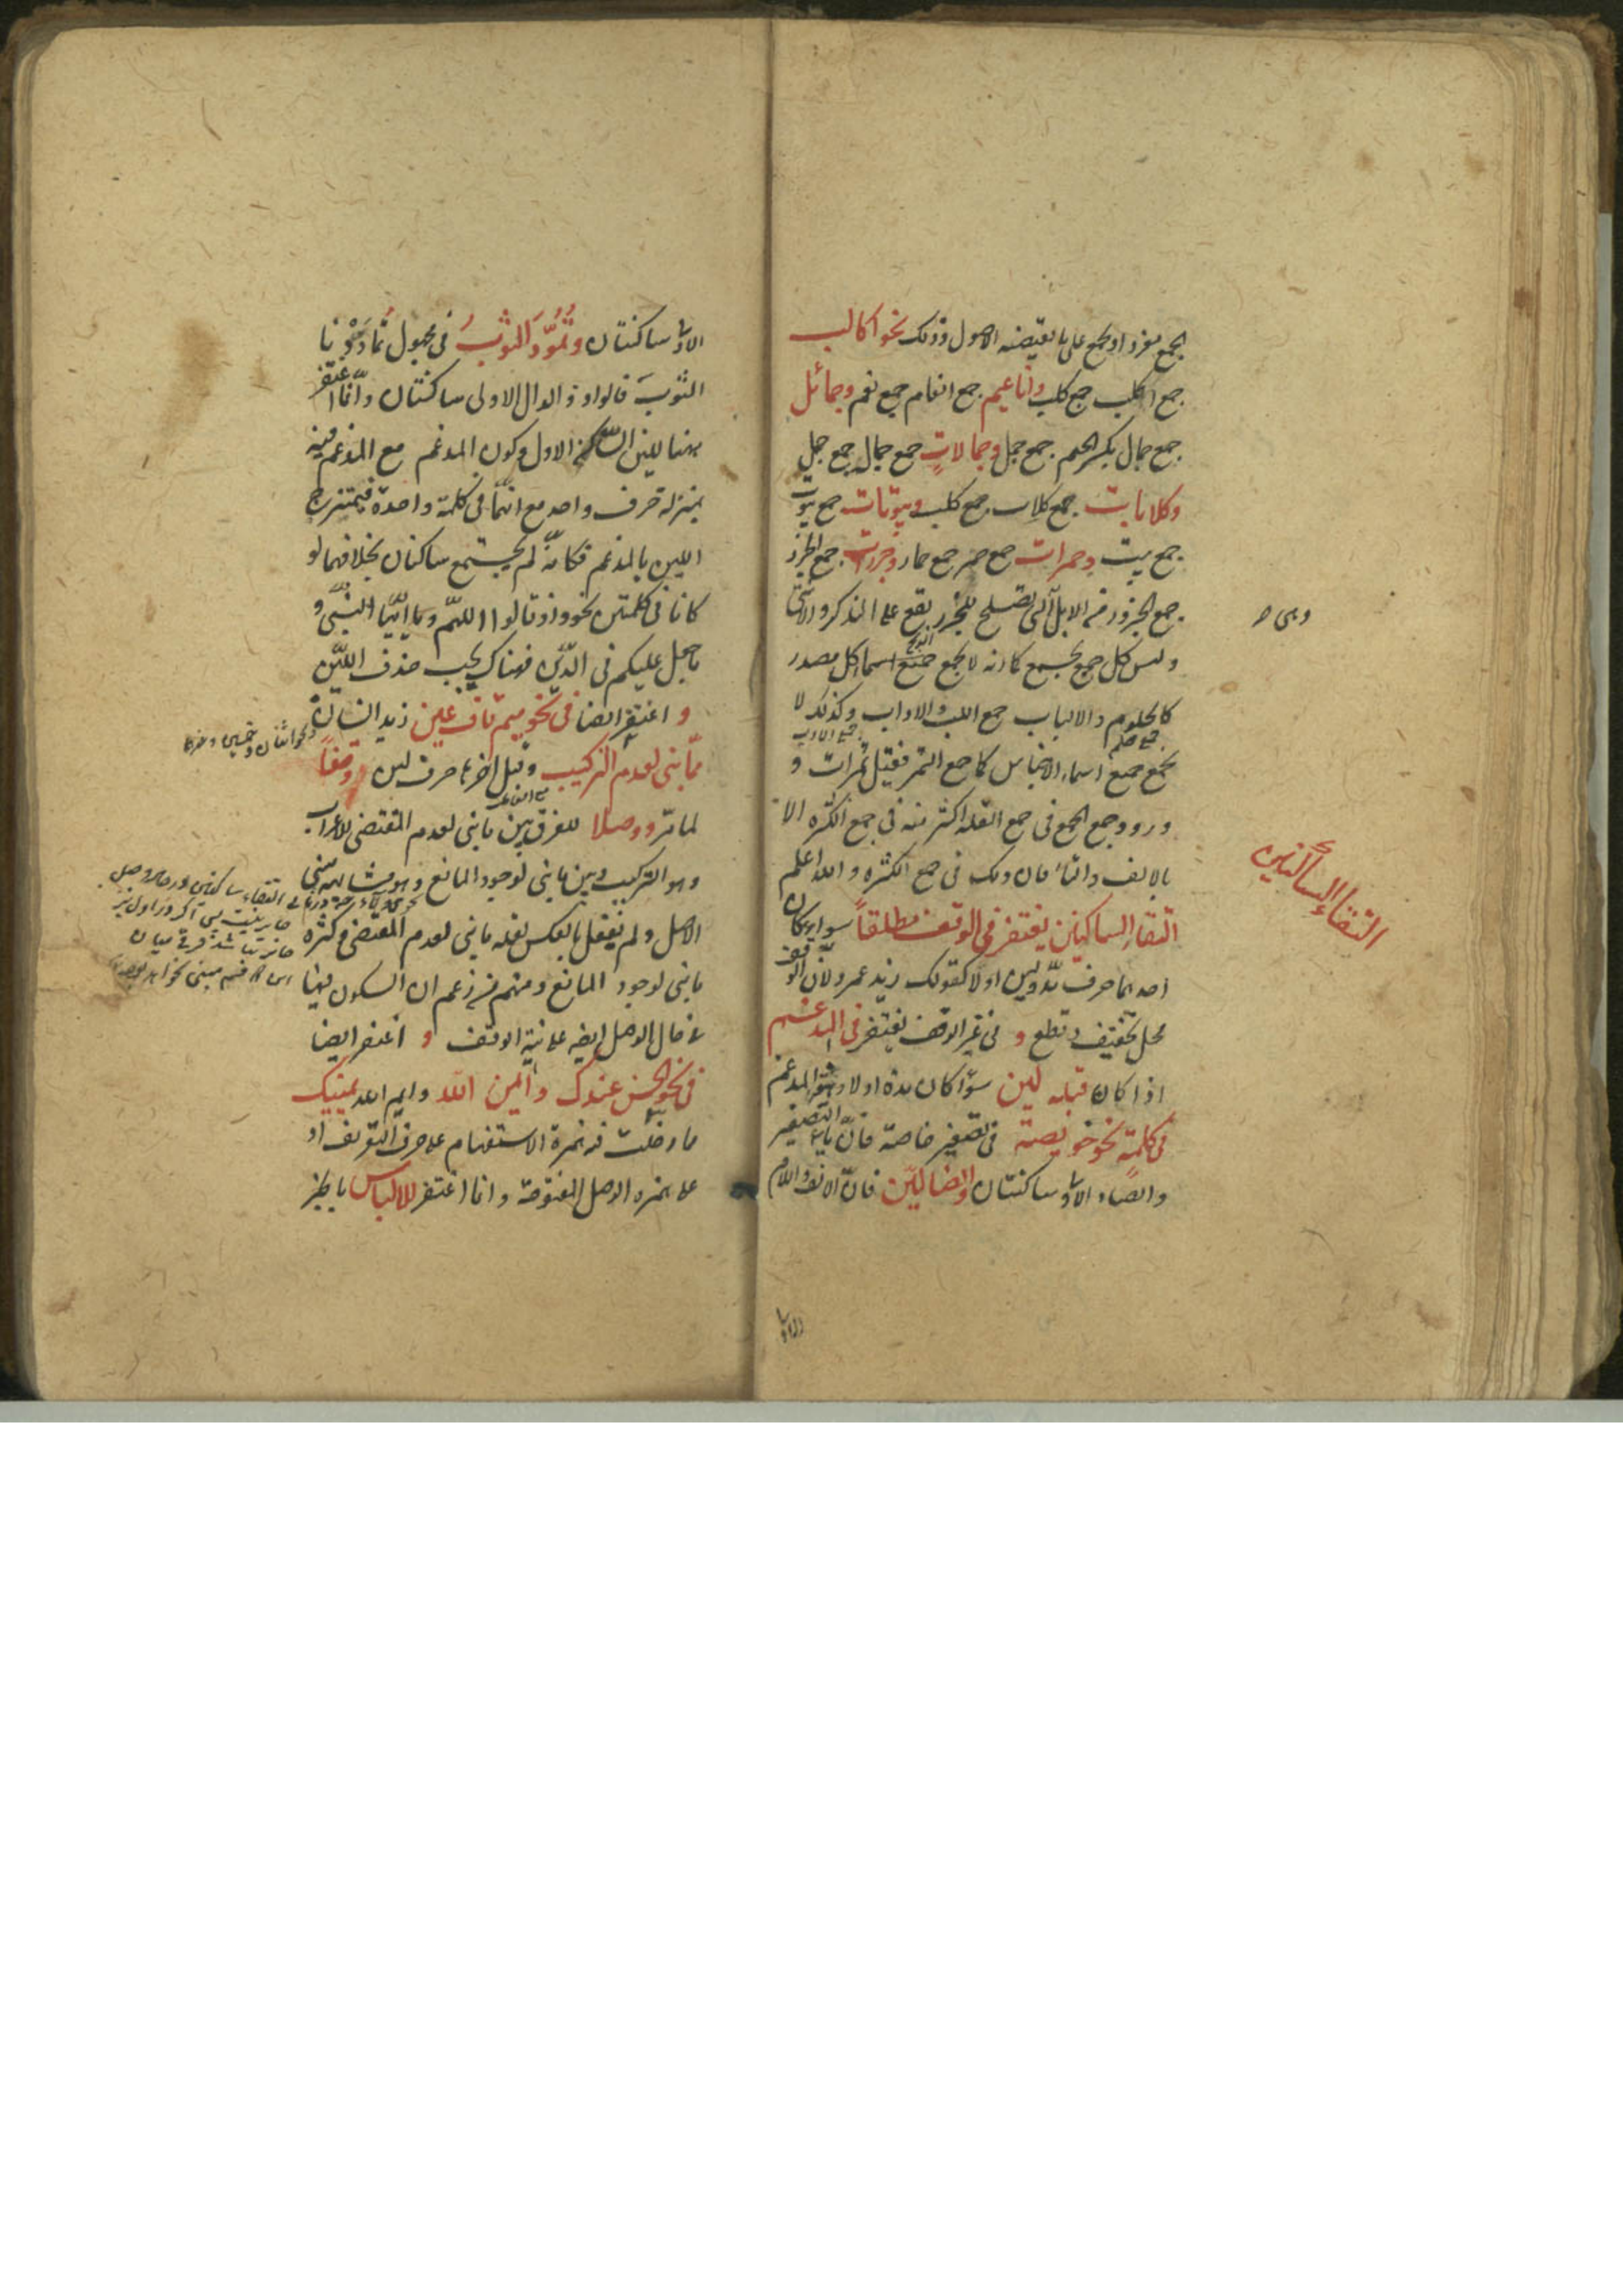 الجمع مفردا ويجمع على ما يقتضيه الاصول وذلك نحو اكالب
جمع اكلب جمع كلب واناعيم جمع انعام جمع نعم وجمائل
جمع جمال بكسر الجيم جمع جمل وجمالات جمع جمال جمع جمل
وكلابات جمع كلاب جمع كلب وبيوتات جمع بيوت
جمع بيت وحمرات جمع حمر جمع حمار وجزرات جمع الجزر
جمع الجزور من الابل التى تصلح للجزر يقع على الذكر والانثى
وهى
وليس كل جمع يجمع كما انه لا يجمع جميع اسماء كل مصدر
كالحلوم والالباب جمع اللب والاداب وكذلك لا
جمع حلم
جمع الادب
يجمع جميع اسماء الاجناس كما جمع التمر فقيل تمرات و
ورود جمع الجمع فى جمع القلة اكثر منه فى جمع الكثرة الا
بالالف والتاء فان ذلك فى جمع الكثرة والله اعلم
التقاء الساكنين
التقاء الساكنين يغتفر فى الوقف مطلقا سواء كان
احدهما حرف مد ولين اولا كقولك زيد عمرو لان الوقف
محل تخفيف وقطع و فى غير الوقف يغتفر فى المدغم
اذا كان قبله لين سواء كان مدة اولا المدغم
فى كلمة نحو خويصة فى تصغير خاصة فان ياء التصغير
والصاد الاولى ساكنتان والضالين فان الالف واللام
الاولى
الاولى ساكنتان وتمود الثوب فى مجهول تماددنا
الثوب فالواو والدال الاولى ساكنتان وانما اغتفر
ههنا للين الساكن الاول وكون المدغم مع المدغم فيه
بمنزلة حرف واحد مع انهما فى كلمة واحدة فيمتزج
اللين بالمدغم فكانه لم يجتمع ساكنان بخلافهما لو
كانا فى كلمتين نحو واذ قالوا اللهم ويا ايها النبى و
ما جعل عليكم فى الدين فهناك يجب حذف اللين
و اغتفر ايضا فى نحو ميم قاف عين زيد انسان
مما بنى لعدم التركيب وقبل اخره حرف لين وقفا
لما مر ووصلا للفرق بين ما بنى لعدم المقتضى للاعراب
وهو التركيب وبين ما بنى لوجود المانع وهو مشابهة مبنى
الاصل ولم يفعل بالعكس لقلة ما بنى لعدم المقتضى وكثرة
ما بنى لوجود المانع ومنهم من زعم ان السكون فيها
فى حال الوصل ايضا على نية الوقف و اغتفر ايضا
فى نحو الحسن عندك وايمن الله وايم الله يمينك
مما دخلت فيه همزة الاستفهام على حرف التعريف او
على همزة الوصل المفتوحة وانما اغتفر للالتباس بالخبر